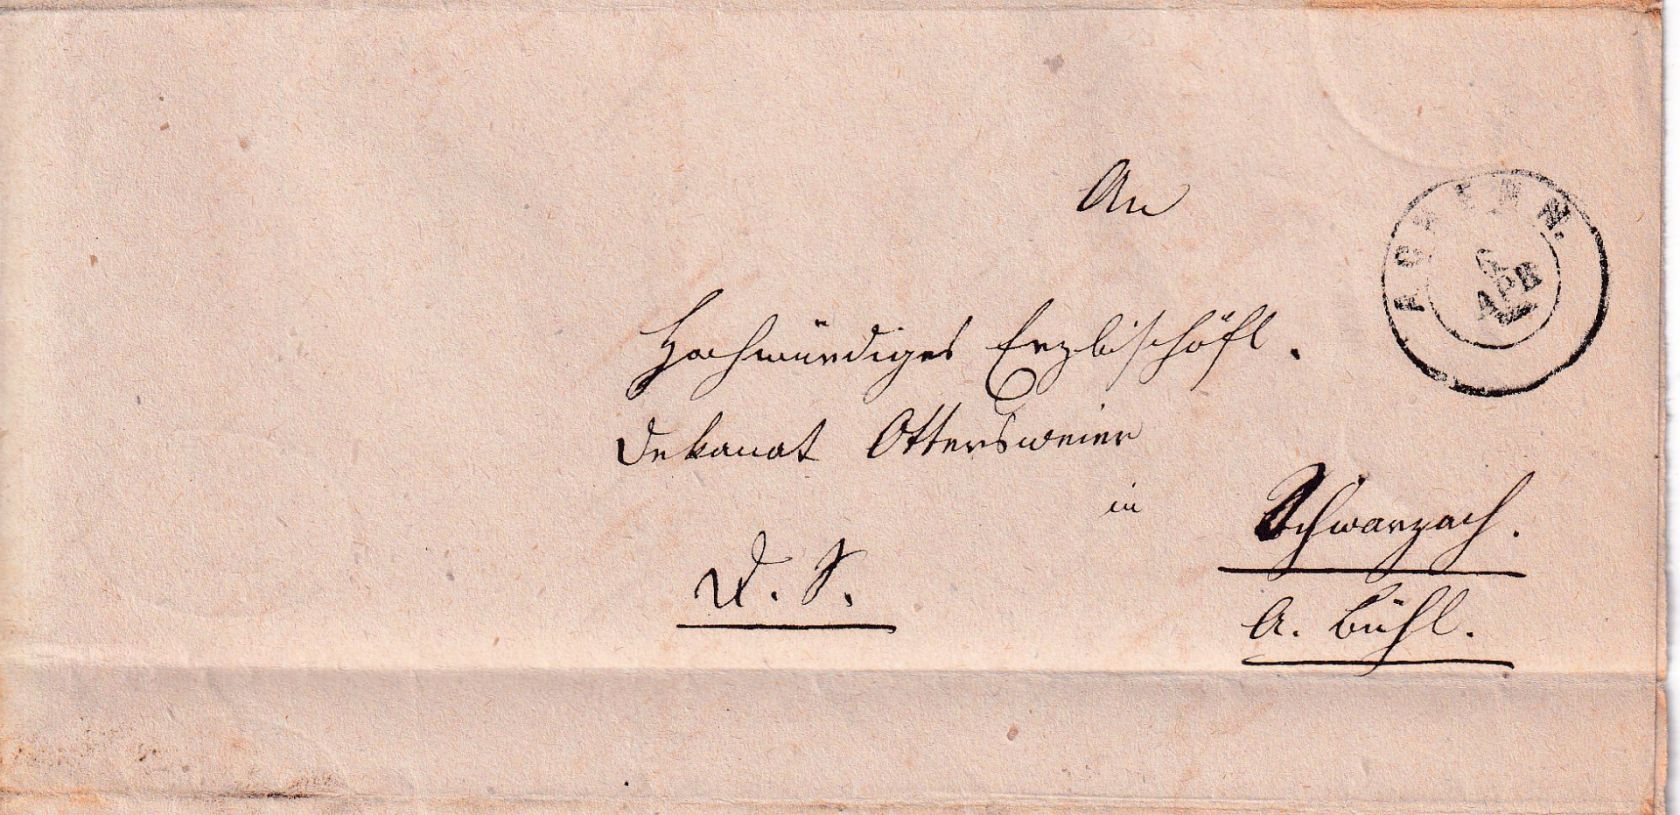 An
ACHERN.
6
APR
Hochwürdiges Erzbischöfl.
Dekanat Ottersweier
in
Schwarzach.
D. S.
A. Bühl.